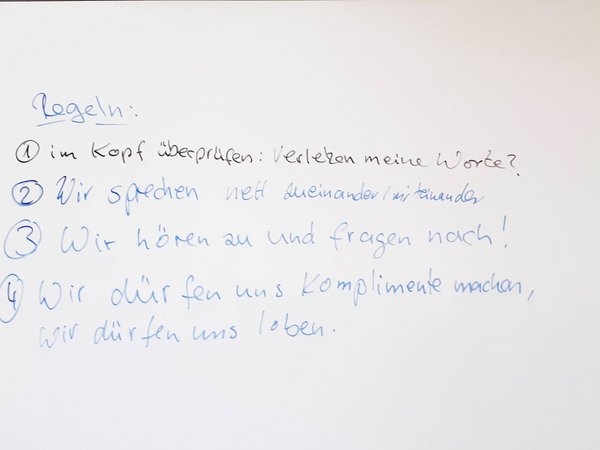 Regeln:
① im Kopf überprüfen: Verletzen meine Worte?
② Wir sprechen nett zueinander/miteinander
③ Wir hören zu und fragen nach!
④ Wir dürfen uns Komplimente machen,
wir dürfen uns loben.